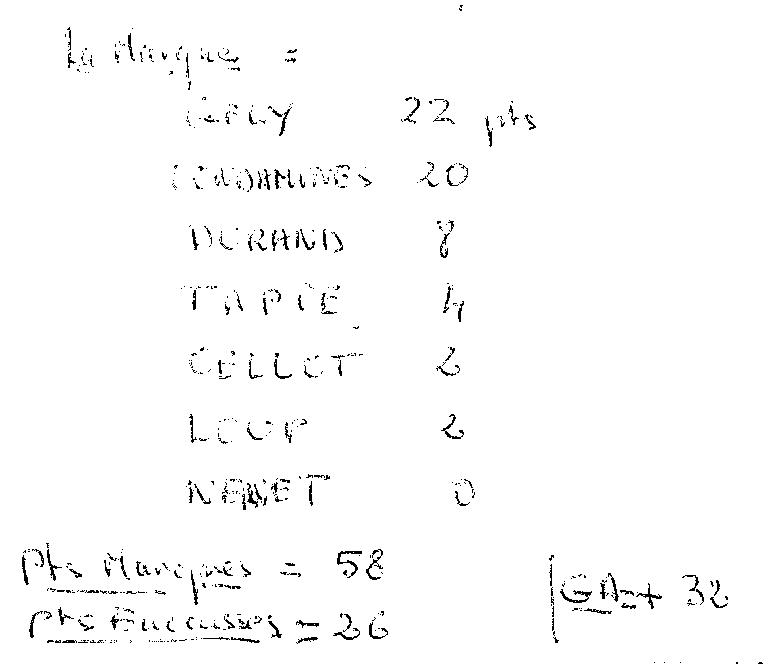 La Marque =
GELY 22 pts
CONDAMINES 20
DURAND 8
TAPIE 4
CELLOT 2
LOUP 2
0
Pts Marques = 58
Pts Encaisses = 26
GA = + 32